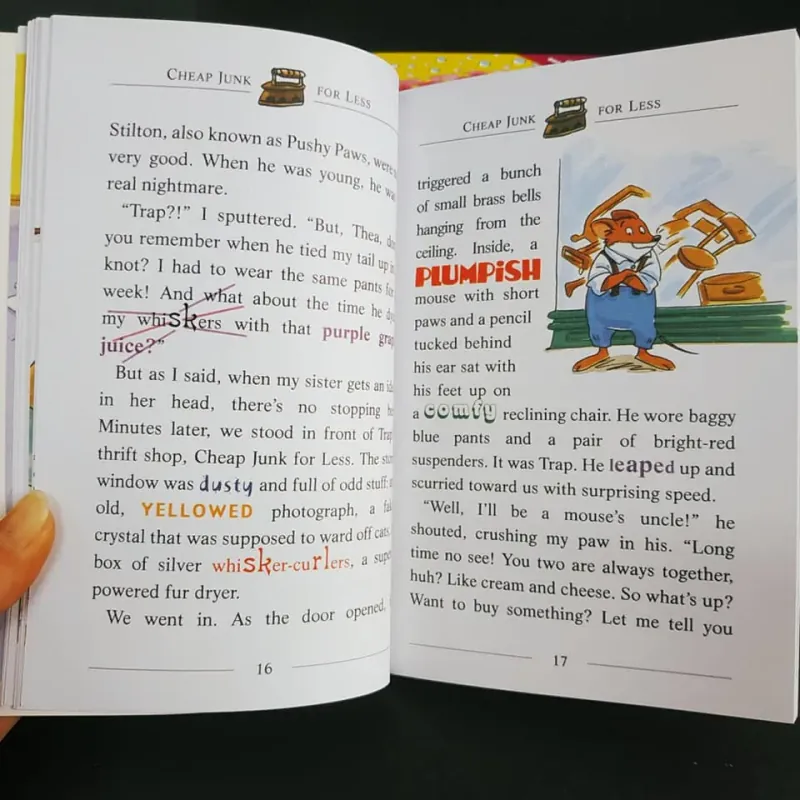 CHEAP JUNK FOR LESS
Stilton, also known as Pushy Paws, were
very good. When he was young, he was
real nightmare.
“Trap?!” I sputtered. “But, Thea,
you remember when he tied my tail up
knot? I had to wear the same pants for
week! And what about the time he
my whiskers with that purple
juice?”
But as I said, when my sister gets an
in her head, there’s no stopping
Minutes later, we stood in front of
thrift shop, Cheap Junk for Less. The
window was dusty and full of odd stuff:
old, YELLOWED photograph, a
crystal that was supposed to ward off cats,
box of silver whisker-curlers, a
powered fur dryer.
We went in. As the door opened,
16
CHEAP JUNK FOR LESS
triggered a bunch
of small brass bells
hanging from the
ceiling. Inside, a
PLUMPISH
mouse with short
paws and a pencil
tucked behind
his ear sat with
his feet up on
a comfy reclining chair. He wore baggy
blue pants and a pair of bright-red
suspenders. It was Trap. He leaped up and
scurried toward us with surprising speed.
“Well, I’ll be a mouse’s uncle!” he
shouted, crushing my paw in his. “Long
time no see! You two are always together,
huh? Like cream and cheese. So what’s up?
Want to buy something? Let me tell you
17